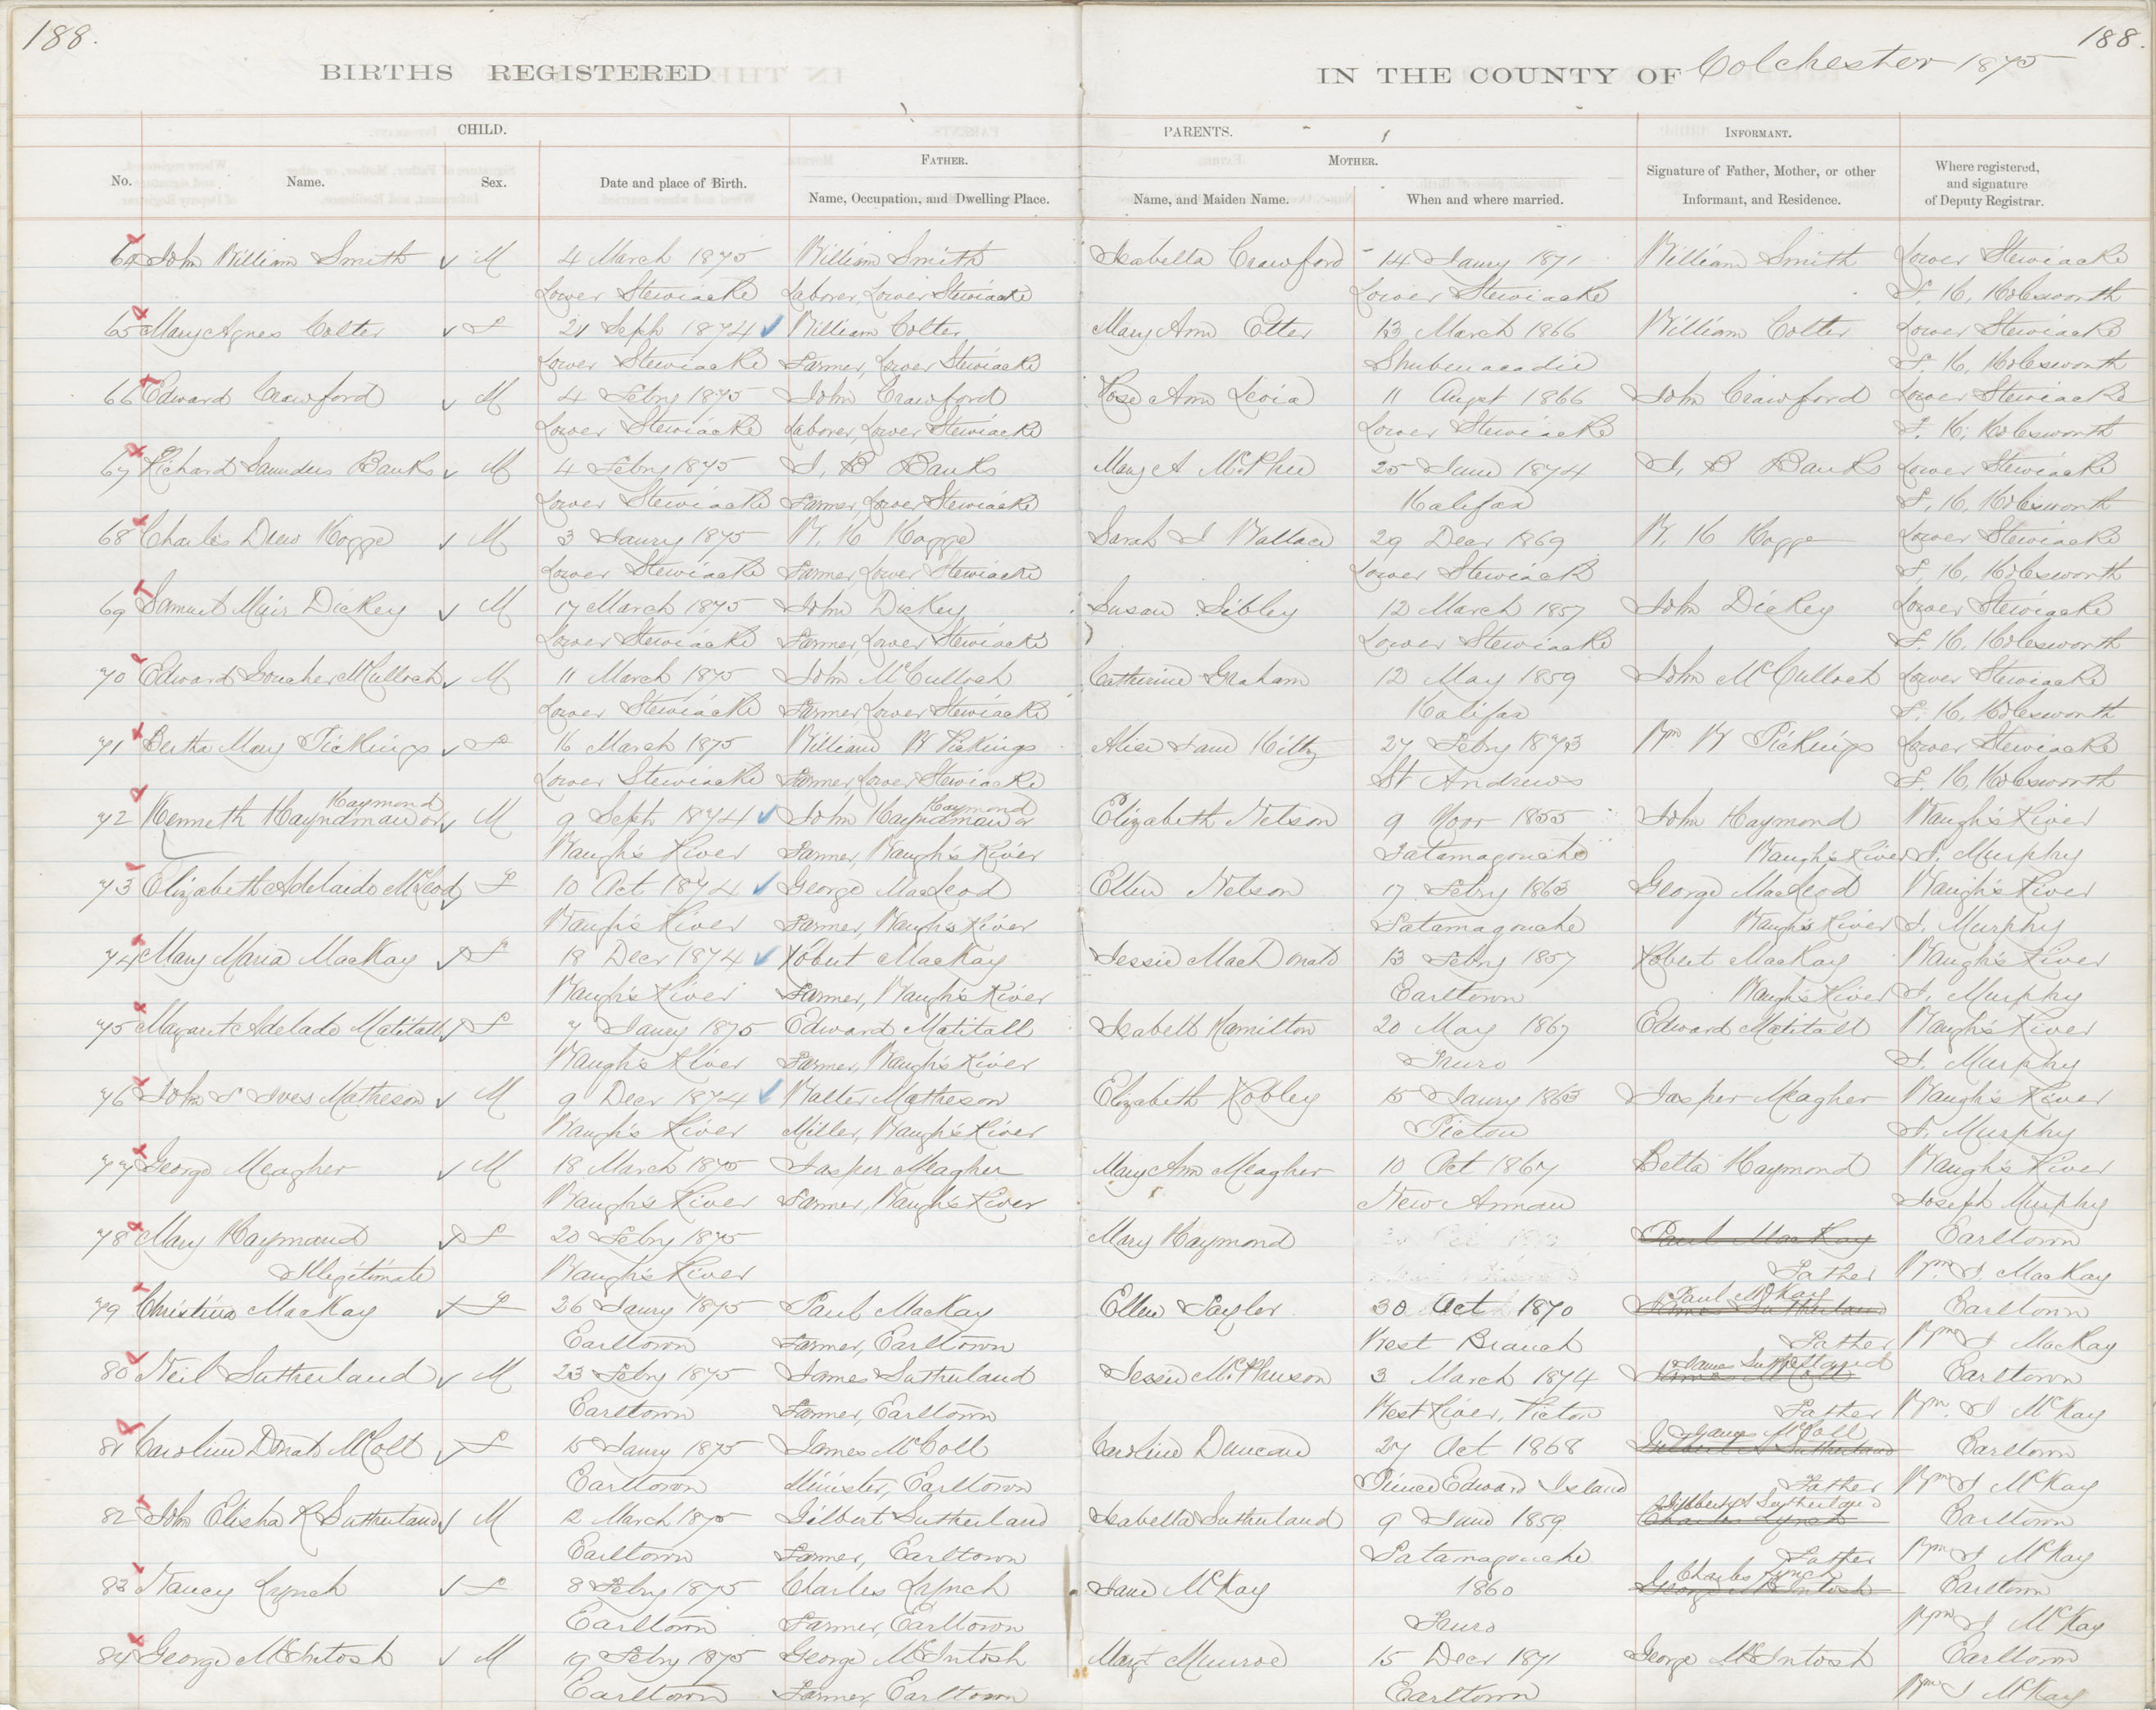 188.
188.
BIRTHS REGISTERED
IN THE COUNTY OF Colchester 1875
CHILD.
PARENTS.
INFORMANT.
FATHER.
MOTHER.
No.
Name.
Sex.
Date and place of Birth.
Name, Occupation, and Dwelling Place.
Name, and Maiden Name.
When and where married.
Signature of Father, Mother, or other
Informant, and Residence.
Where registered,
and signature
of Deputy Registrar.
64 John William Smith M 4 March 1875 William Smith Isabella Crawford 14 Jany 1871 William Smith Lower Stewiacke
Lower Stewiacke Laborer, Lower Stewiacke Lower Stewiacke F. H. Holesworth
65 Mary Agnes Colter F 21 Sept 1874 William Colter Mary Ann Etter 13 March 1866 William Colter Lower Stewiacke
Lower Stewiacke Farmer, Lower Stewiacke Shubenacadie F. H. Holesworth
66 Edward Crawford M 4 Febry 1875 John Crawford Rose Ann 11 Augst 1866 John Crawford Lower Stewiacke
Lower Stewiacke Laborer, Lower Stewiacke Lower Stewiacke F. H. Holesworth
67 Richard Saunders Banks M 4 Febry 1875 J. B Banks Mary A McPhee 25 June 1874 J. B Banks Lower Stewiacke
Lower Stewiacke Farmer, Lower Stewiacke Halifax F. H. Holesworth
68 Charles Drew Hogge M 3 Jany 1875 W. H Hogge Sarah J Wallace 29 Decr 1869 W. H Hogge Lower Stewiacke
Lower Stewiacke Farmer, Lower Stewiacke Lower Stewiack F. H. Holesworth
69 Samuel Muir Dickey M 17 March 1875 John Dickey Susan Sibley 12 March 1857 John Dickey Lower Stewiacke
Lower Stewiacke Farmer, Lower Stewiacke Lower Stewiacke F. H. Holesworth
70 Edward Goucher McCulloch M 11 March 1875 John McCulloch Catherine Graham 12 May 1859 John McCulloch Lower Stewiacke
Lower Stewiacke Farmer, Lower Stewiacke Halifax F. H. Holesworth
71 Bertha Mary Pickings F 16 March 1875 William W Pickings Alice Jane Hiltz 27 Febry 1873 Wm W Pickings Lower Stewiacke
Lower Stewiacke Farmer, Lower Stewiacke St Andrews F. H. Holesworth
Haymond Haymond
72 Kenneth Haynaman or M 9 Sept 1874 John Haynaman or Elizabeth Nelson 9 Novr 1855 John Haymond Waugh's River
Waugh's River Farmer, Waugh's River Tatamagouche Waugh's River J. Murphy
73 Elizabeth Adelaide McLeod F 10 Oct 1874 George MacLeod Ellen Nelson 17 Febry 1863 George MacLeod Waugh's River
Waugh's River Farmer, Waugh's River Tatamagouche Waugh's River J. Murphy
74 Mary Maria MacKay F 18 Decr 1874 Robert MacKay Jessie MacDonald 13 Febry 1857 Robert MacKay Waugh's River
Waugh's River Farmer, Waugh's River Earltown Waugh's River J. Murphy
75 Margaret Adelade Matitall F 7 Janey 1875 Edward Matitall Isabell Hamilton 20 May 1867 Edward Matitall Waugh's River
Waugh's River Farmer, Waugh's River Truro J. Murphy
76 John S Ives Matheson M 9 Decr 1874 Walter Matheson Elizabeth Robley 15 Jany 1863 Jasper Meagher Waugh's River
Waugh's River Miller, Waugh's River Pictou J. Murphy
77 George Meagher M 18 March 1875 Jasper Meagher Mary Ann Meagher 10 Oct 1867 Bella Haymond Waugh's River
Waugh's River Farmer, Waugh's River New Annan Joseph Murphy
78 Mary Haymand F 20 Febry 1875 Mary Haymond Paul MacKay Earltown
Illegitimate Waugh's River Father Wm J. MacKay
Paul McKay
79 Christina MacKay F 26 Jany 1875 Paul MacKay Ellen Tayler 30 Oct 1870 James Sutherland Earltown
Earltown Farmer, Earltown West Branch Father Wm J MacKay
James Sutherland
80 Neil Sutherland M 23 Febry 1875 James Sutherland Jessie McPherson 3 March 1874 James McColl Earltown
Earltown Farmer, Earltown West River, Pictou Father Wm J McKay
James McColl
81 Caroline Donat McColl F 15 Jany 1875 James McColl Caroline Duncan 27 Oct 1868 Gilbert A Sutherland Earltown
Earltown Minister, Earltown Prince Edward Island Father Wm J McKay
Gilbert A Sutherland
82 John Elisha R Sutherland M 12 March 1875 Gilbert Sutherland Isabella Sutherland 9 June 1859 Charles Lynch Earltown
Earltown Farmer, Earltown Tatamagouche Father Wm J McKay
Charles Lynch
83 Nancy Lynch F 8 Febry 1875 Charles Lynch Jane McKay 1860 George McIntosh Earltown
Earltown Farmer, Earltown Truro Wm J McKay
84 George McIntosh M 19 Febry 1875 George McIntosh Margt Munroe 15 Decr 1871 George McIntosh Earltown
Earltown Farmer, Earltown Earltown Wm J McKay